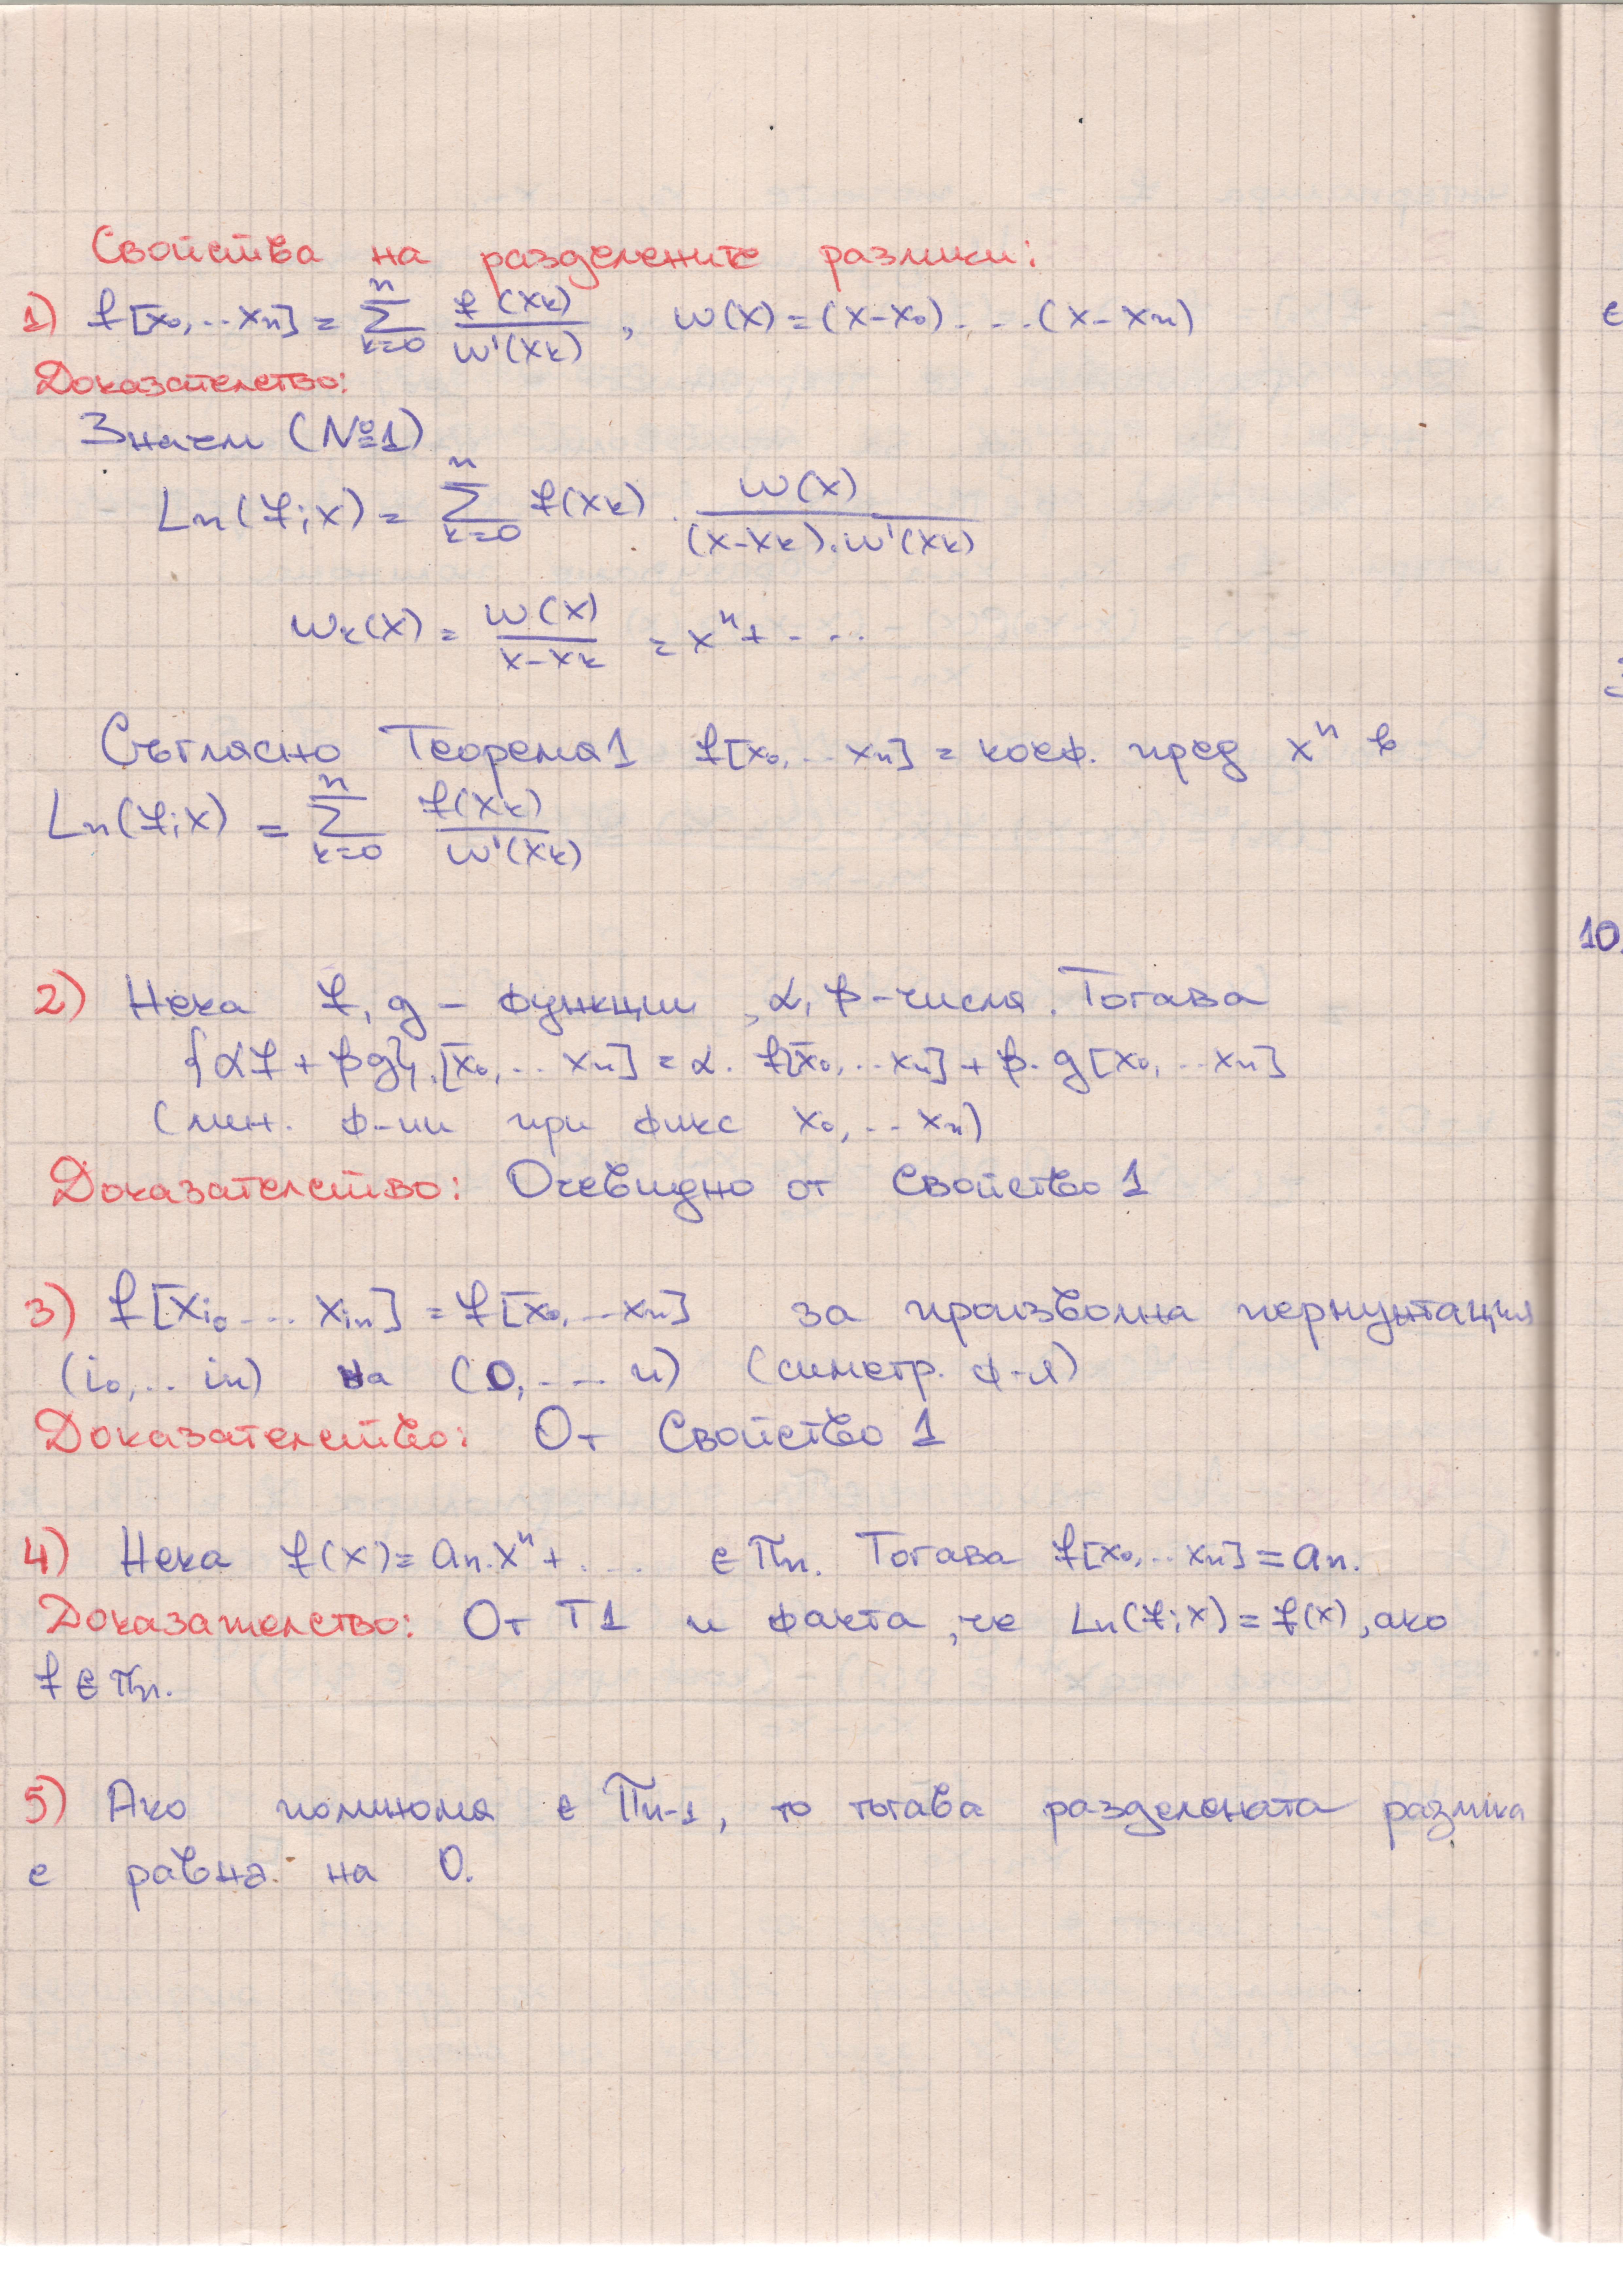 Свойства на разделените разлики:
1) f[x₀,..xₙ] = ∑ₖ₌₀ⁿ f(xₖ)/ω'(xₖ) , ω(x)=(x-x₀)...(x-xₙ)
Доказателство:
Знаем (№1)
Lₙ(f;x) = ∑ₖ₌₀ⁿ f(xₖ) . ω(x)/((x-xₖ).ω'(xₖ))
ωₖ(x) = ω(x)/(x-xₖ) = xⁿ+...
Съгласно Теорема1 f[x₀,..xₙ] = коеф. пред xⁿ в
Lₙ(f;x) = ∑ₖ₌₀ⁿ f(xₖ)/ω'(xₖ)
2) Нека f, g - функции , α, β-числа. Тогава
{αf + βg}.[x₀,.. xₙ] = α. f[x₀,..xₙ] + β. g[x₀,..xₙ]
(лин. ф-ии при фикс x₀,..xₙ)
Доказателство: Очевидно от Свойство 1
3) f[xᵢ₀... xᵢₙ] = f[x₀,..xₙ] за произволна пермутация
(i₀,.. iₙ) на (0,... n) (симетр. ф-я)
Доказателство: От Свойство 1
4) Нека f(x)= aₙ.xⁿ+... ∈ πₙ. Тогава f[x₀,..xₙ] = aₙ.
Доказателство: От Т1 и факта, че Lₙ(f;x) = f(x), ако
f ∈ πₙ.
5) Ако полинома ∈ πₙ₋₁, то тогава разделената разлика
е равна на 0.
10.